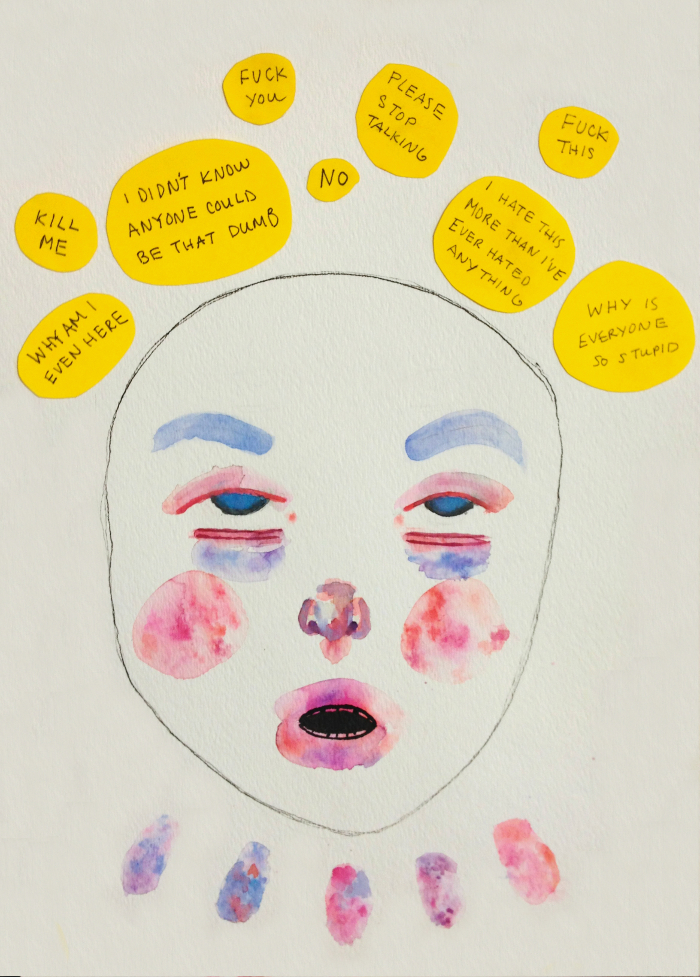 FUCK
YOU
PLEASE
STOP
TALKING
FUCK
THIS
I DIDN'T KNOW
ANYONE COULD
BE THAT DUMB
NO
KILL
ME
I HATE THIS
MORE THAN I'VE
EVER HATED
ANYTHING
WHY AM I
EVEN HERE
WHY IS
EVERYONE
SO STUPID